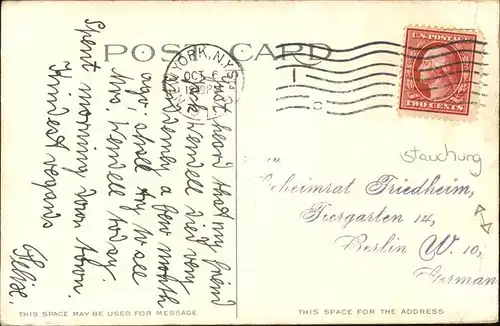 POST CARD
NEW YORK, N.Y. STA
OCT 6
12 PM
U.S. POSTAGE
TWO CENTS
Just heard that my friend
Wendell died very
suddenly a few month
ago; shall try to see
Mrs. Wendell today.
Spent morning down town.
Kindest regards
Felix.
Stauchung
Geheimrat Friedheim,
Tiergarten 14,
Berlin W. 10,
German
THIS SPACE MAY BE USED FOR MESSAGE
THIS SPACE FOR THE ADDRESS